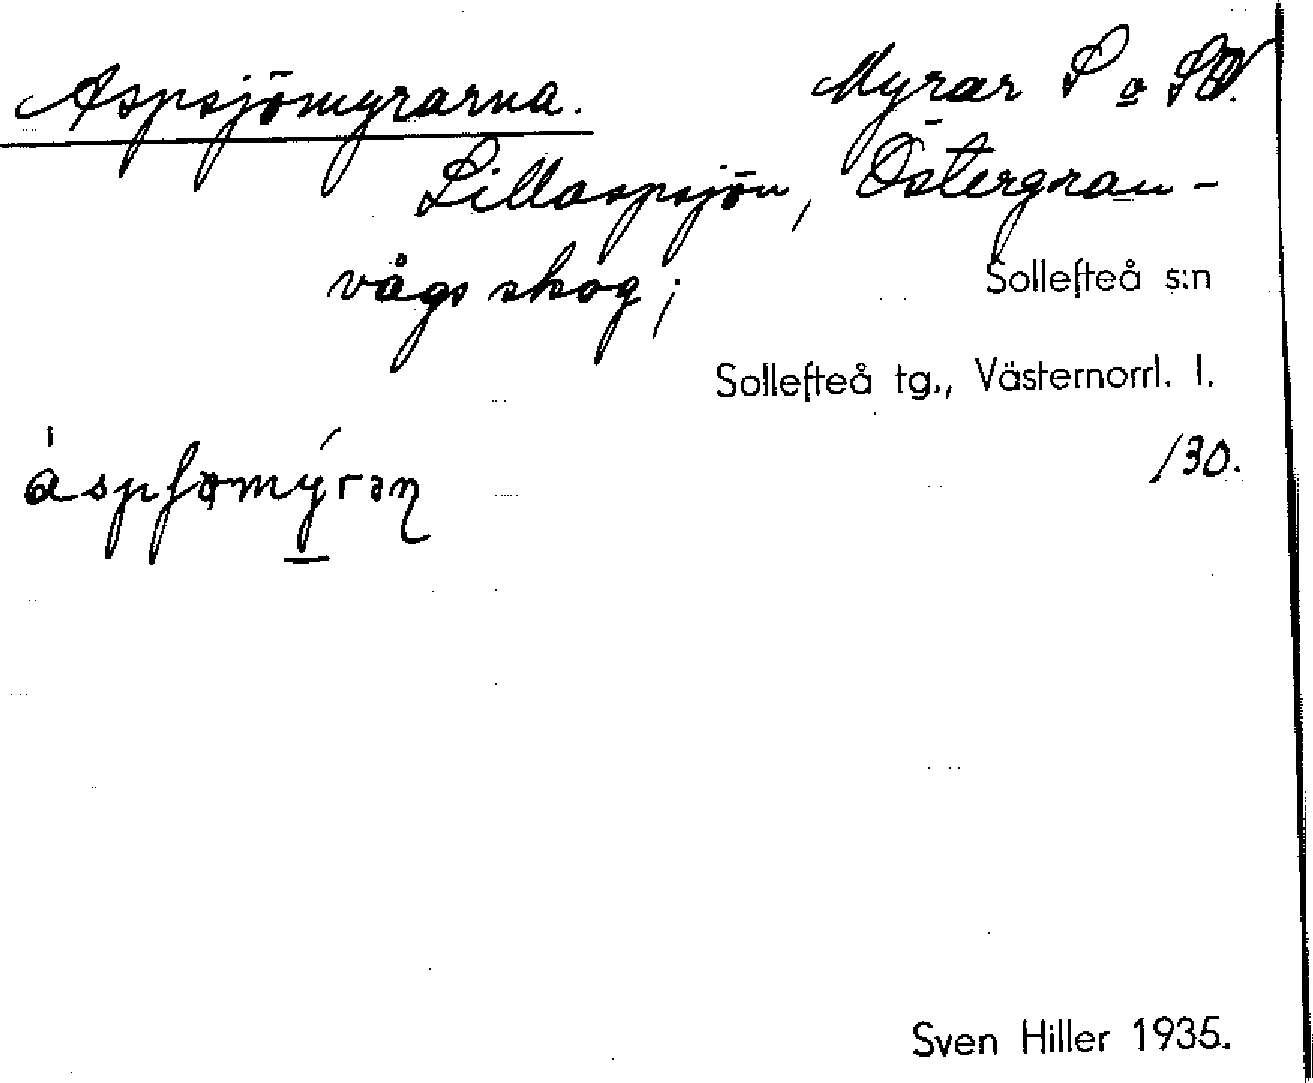 Aspsjömyrarna. Myrar S o SV.
Lillaspsjön, Östergran-
vågs skog; Sollefteå s:n
Sollefteå tg., Västernorrl. l.
/30.
Sven Hiller 1935.